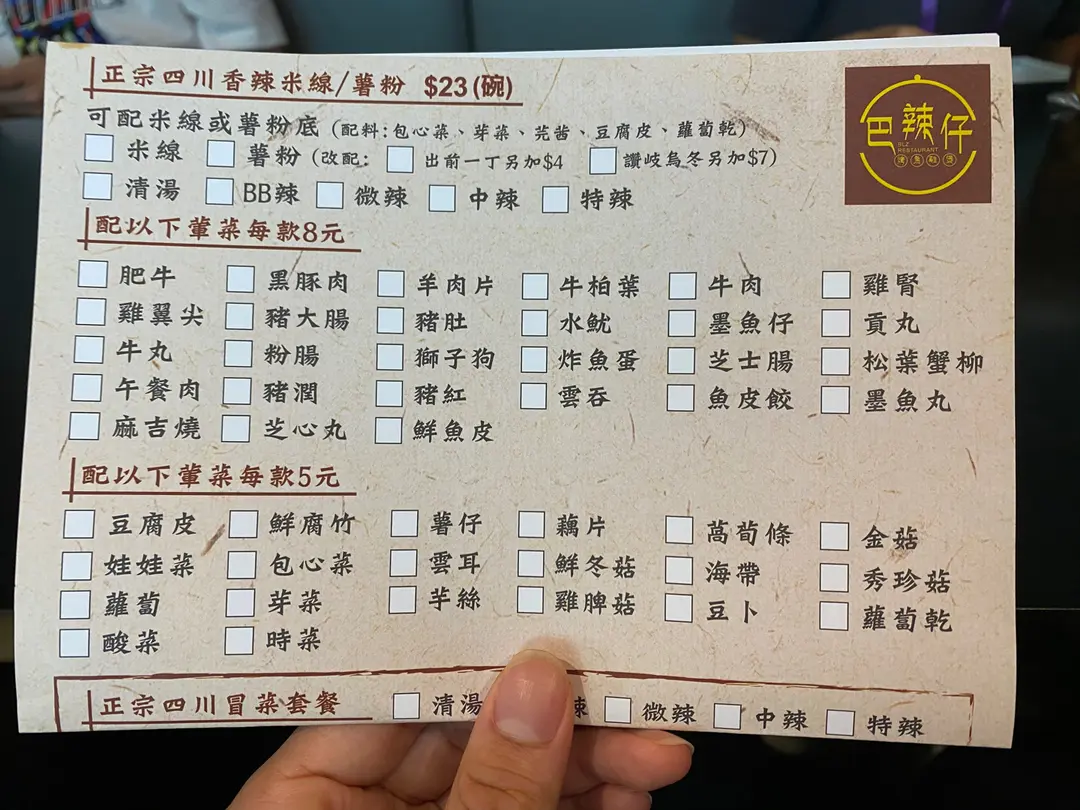 正宗四川香辣米線/薯粉 $23(碗)
可配米線或薯粉底 (配料:包心菜、芽菜、芫茜、豆腐皮、蘿蔔乾)
米線 薯粉 (改配: 出前一丁另加$4 讚岐烏冬另加$7)
清湯 BB辣 微辣 中辣 特辣
巴辣仔
BLZ
RESTAURANT
配以下葷菜每款8元
肥牛 黑豚肉 羊肉片 牛柏葉 牛肉 雞腎
雞翼尖 豬大腸 豬肚 水魷 墨魚仔 貢丸
牛丸 粉腸 獅子狗 炸魚蛋 芝士腸 松葉蟹柳
午餐肉 豬潤 豬紅 雲吞 魚皮餃 墨魚丸
麻吉燒 芝心丸 鮮魚皮
配以下葷菜每款5元
豆腐皮 鮮腐竹 薯仔 藕片 萵荀條 金菇
娃娃菜 包心菜 雲耳 鮮冬菇 海帶 秀珍菇
蘿蔔 芽菜 芋絲 雞脾菇 豆卜 蘿蔔乾
酸菜 時菜
正宗四川冒菜套餐 清湯 辣 微辣 中辣 特辣